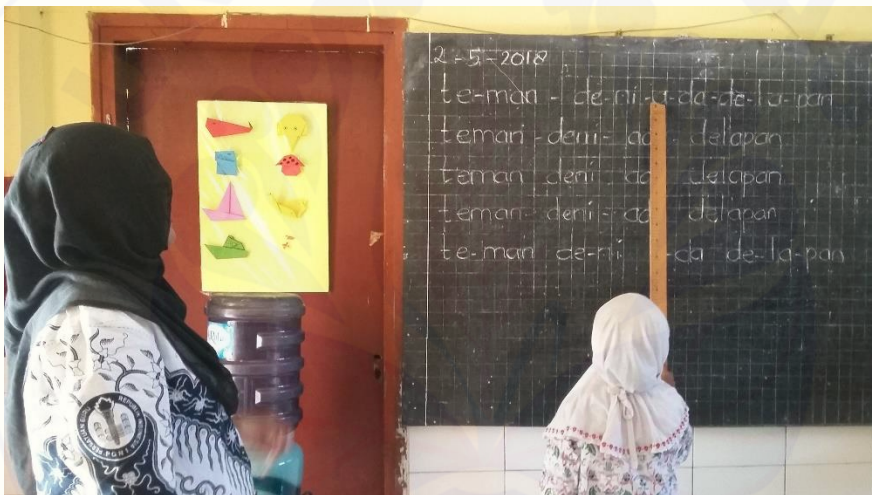 2-5-2018
te-man - de-ni-a-da-de-la-pan
teman-deni-ad delapan
teman deni ad delapan
teman-deni-ad delapan
te-man de-ni -da de-la-pan
PGRI